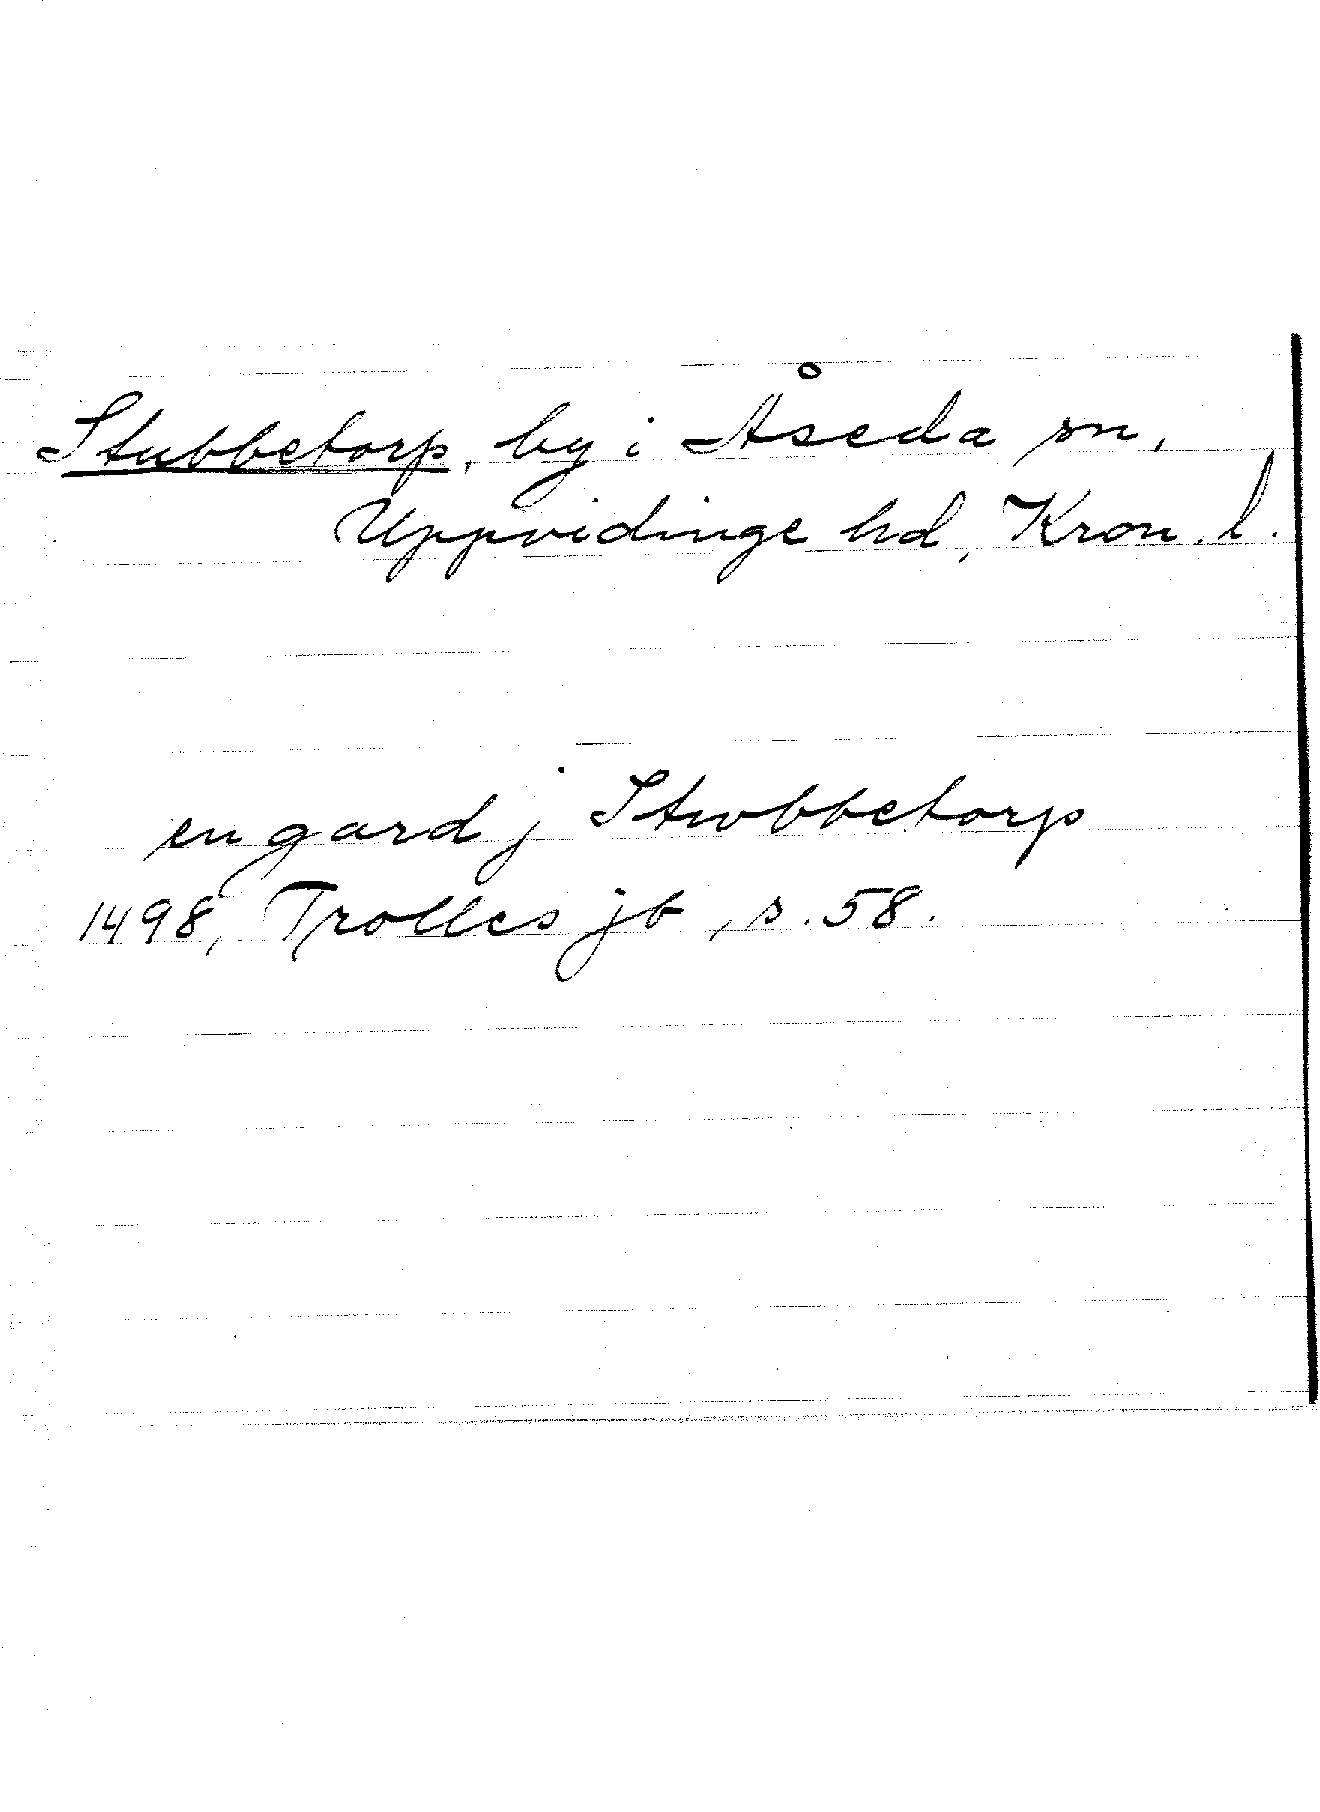 Stubbetorp, by i Åseda sn,
Uppvidinge hd, Kron. l.
en gard j Stwbbetorp
1498, Trolles jb, s. 58.